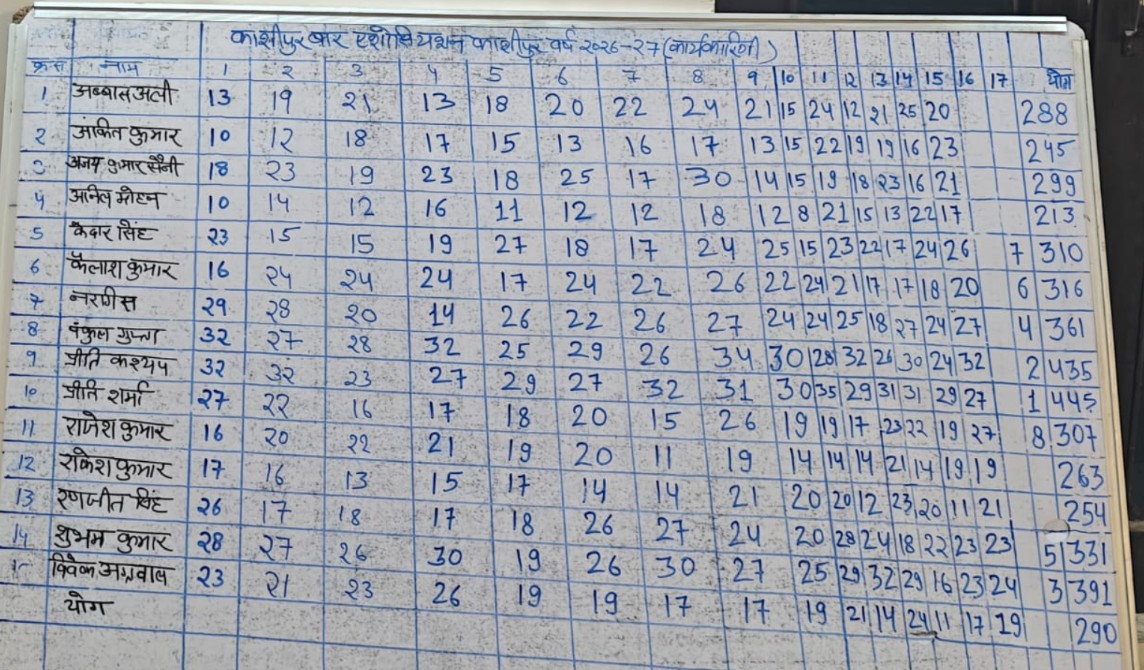 काशीपुर बार एशोसियेशन काशीपुर वर्ष २०२६-२७ (कार्यकारिणी)
क्र०स० नाम 1 2 3 4 5 6 7 8 9 10 11 12 13 14 15 16 17 योग
1 अब्बास अली 13 19 21 13 18 20 22 24 21 15 24 12 21 25 20 288
2 अंकित कुमार 10 12 18 17 15 13 16 17 13 15 22 19 19 16 23 245
3 अजय कुमार सैनी 18 23 19 23 18 25 17 30 14 15 19 18 23 16 21 299
4 अनिल मोहन 10 14 12 16 11 12 12 18 12 8 21 15 13 22 17 213
5 केदार सिंह 23 15 15 19 27 18 17 24 25 15 23 22 17 24 26 7 310
6 कैलाश कुमार 16 24 24 24 17 24 22 26 22 24 21 17 17 18 20 6 316
7 नरगीस 29 28 20 14 26 22 26 27 24 24 25 18 27 24 27 4 361
8 वंकुल गुप्ता 32 27 28 32 25 29 26 34 30 28 32 26 30 24 32 2 435
9 प्रीति कश्यप 32 32 23 27 29 27 32 31 30 35 29 31 31 29 27 1 445
10 प्रीति शर्मा 27 22 16 17 18 20 15 26 19 19 17 23 22 19 27 8 307
11 राजेश कुमार 16 20 22 21 19 20 11 19 14 14 14 21 14 19 19 263
12 राकेश कुमार 17 16 13 15 17 14 14 21 20 20 12 23 20 11 21 254
13 रणजीत सिंह 26 17 18 17 18 26 27 24 20 28 24 18 22 23 23 5 331
14 शुभम कुमार 28 27 26 30 19 26 30 27 25 29 32 29 16 23 24 3 391
विवेक अग्रवाल 23 21 23 26 19 19 17 17 19 21 14 24 11 17 19 290
योग